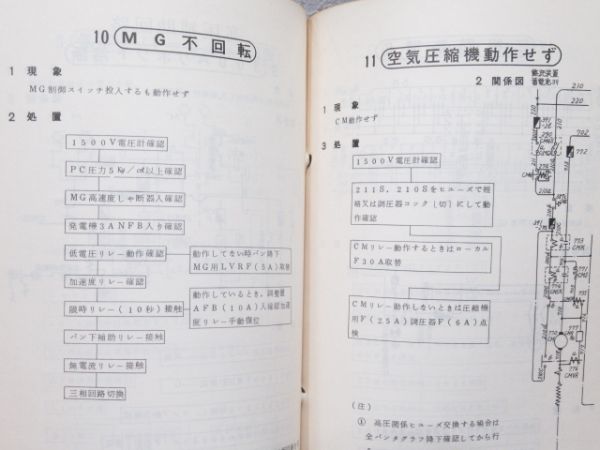 10 MG不回転
1 現象
MG制御スイッチ投入するも動作せず
2 処置
1500V電圧計確認
PC圧力5㎏/㎠以上確認
MG高速度しゃ断器入確認
発電機3ANFB入り確認
低電圧リレー動作確認
動作してない時パン降下
MG用LVRF(5A)取替
加速度リレー確認
限時リレー(10秒)接触
動作しているとき、調整器
AFB(10A)入確認加速
度リレー手動復位
パン下補助リレー接触
無電流リレー接触
三相回路切換
11 空気圧縮機動作せず
2 関係図
1 現象
CM動作せず
3 処置
1500V電圧計確認
211S、210Sをヒューズで短
絡又は調圧器コック〔切〕にして動
作確認
CMリレー動作するときはローカル
F30A取替
CMリレー動作しないときは圧縮機
用F(25A)調圧器F(6A)点
検
(注)
① 高圧関係ヒューズ交換する場合は
全パンタグラフ降下確認してから行
210
220
702
772
CMR